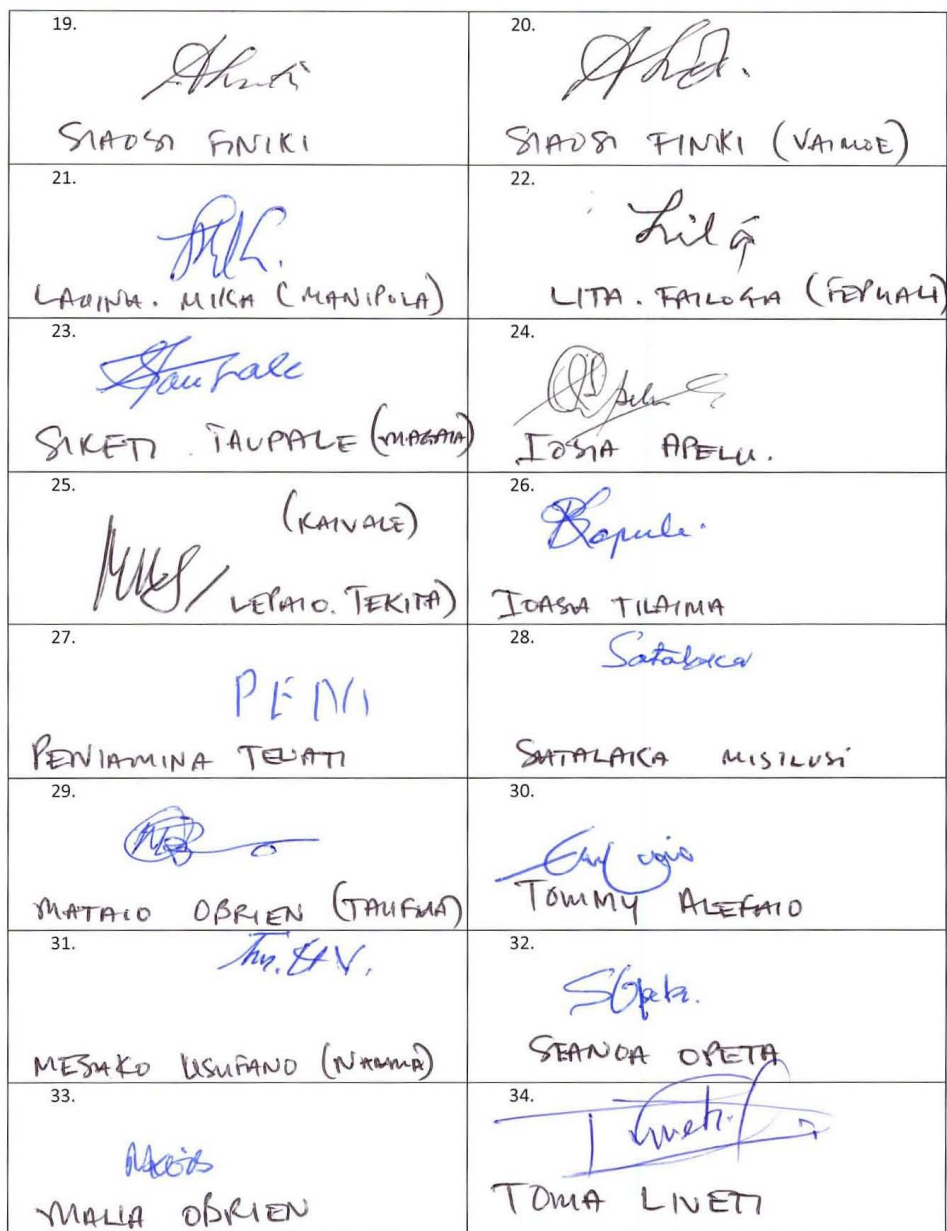 19.
SIAOSI FINIKI
20.
SIAOSI FINIKI (VAIMOE)
21.
LAQINA. MIKA (MANIPOLA)
22.
Lita
LITA. FAILOGIA (FEPUALI)
23.
Taupale
SIKETI TAUPALE (MAGAIA)
24.
IOSIA APELU.
25.
(KAIVALE)
LEPAIO. TEKITA)
26.
IOASIA TILAIMA
27.
PENI
PENIAMINA TEUATI
28.
Satalaka
SATALAKA MISILUSI
29.
MATAIO OBRIEN (TAUFUA)
30.
TOMMY ALEFAIO
31.
MESAKO USUFANO
32.
SOpeta.
SEANOA OPETA
33.
MALIA OBRIEN
34.
TOMA LIVETI